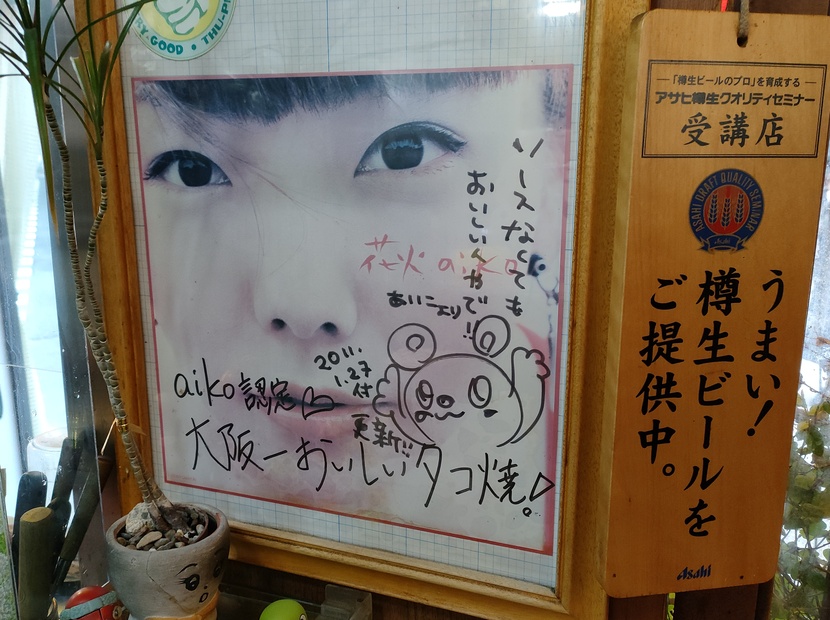 Y GOOD • THU-PI
ソースなくても
おいしいんやで!!
花火 aiko
あいこより
2011.
1.27
付
更新!!
aiko認定
大阪一おいしいタコ焼。
「樽生ビールのプロ」を育成する
アサヒ樽生クオリティセミナー
受講店
ASAHI DRAFT QUALITY SEMINAR
Asahi
うまい!
樽生ビールを
ご提供中。
Asahi